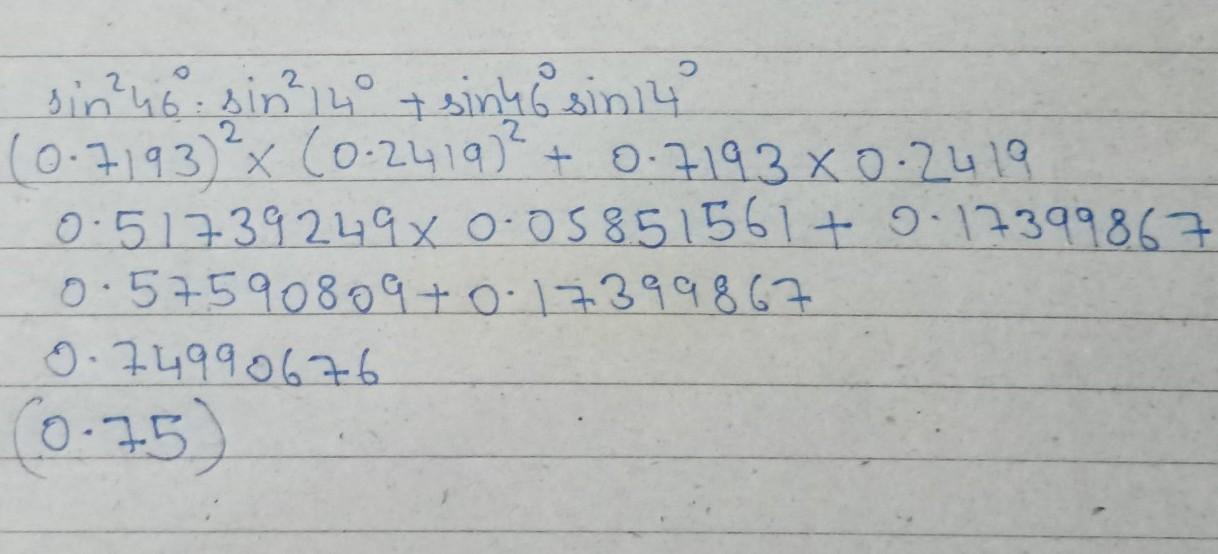 sin²46°. sin²14° + sin46° sin14°
(0.7193)² × (0.2419)² + 0.7193 × 0.2419
0.51739249 × 0.05851561 + 0.17399867
0.57590809 + 0.17399867
0.74990676
(0.75)